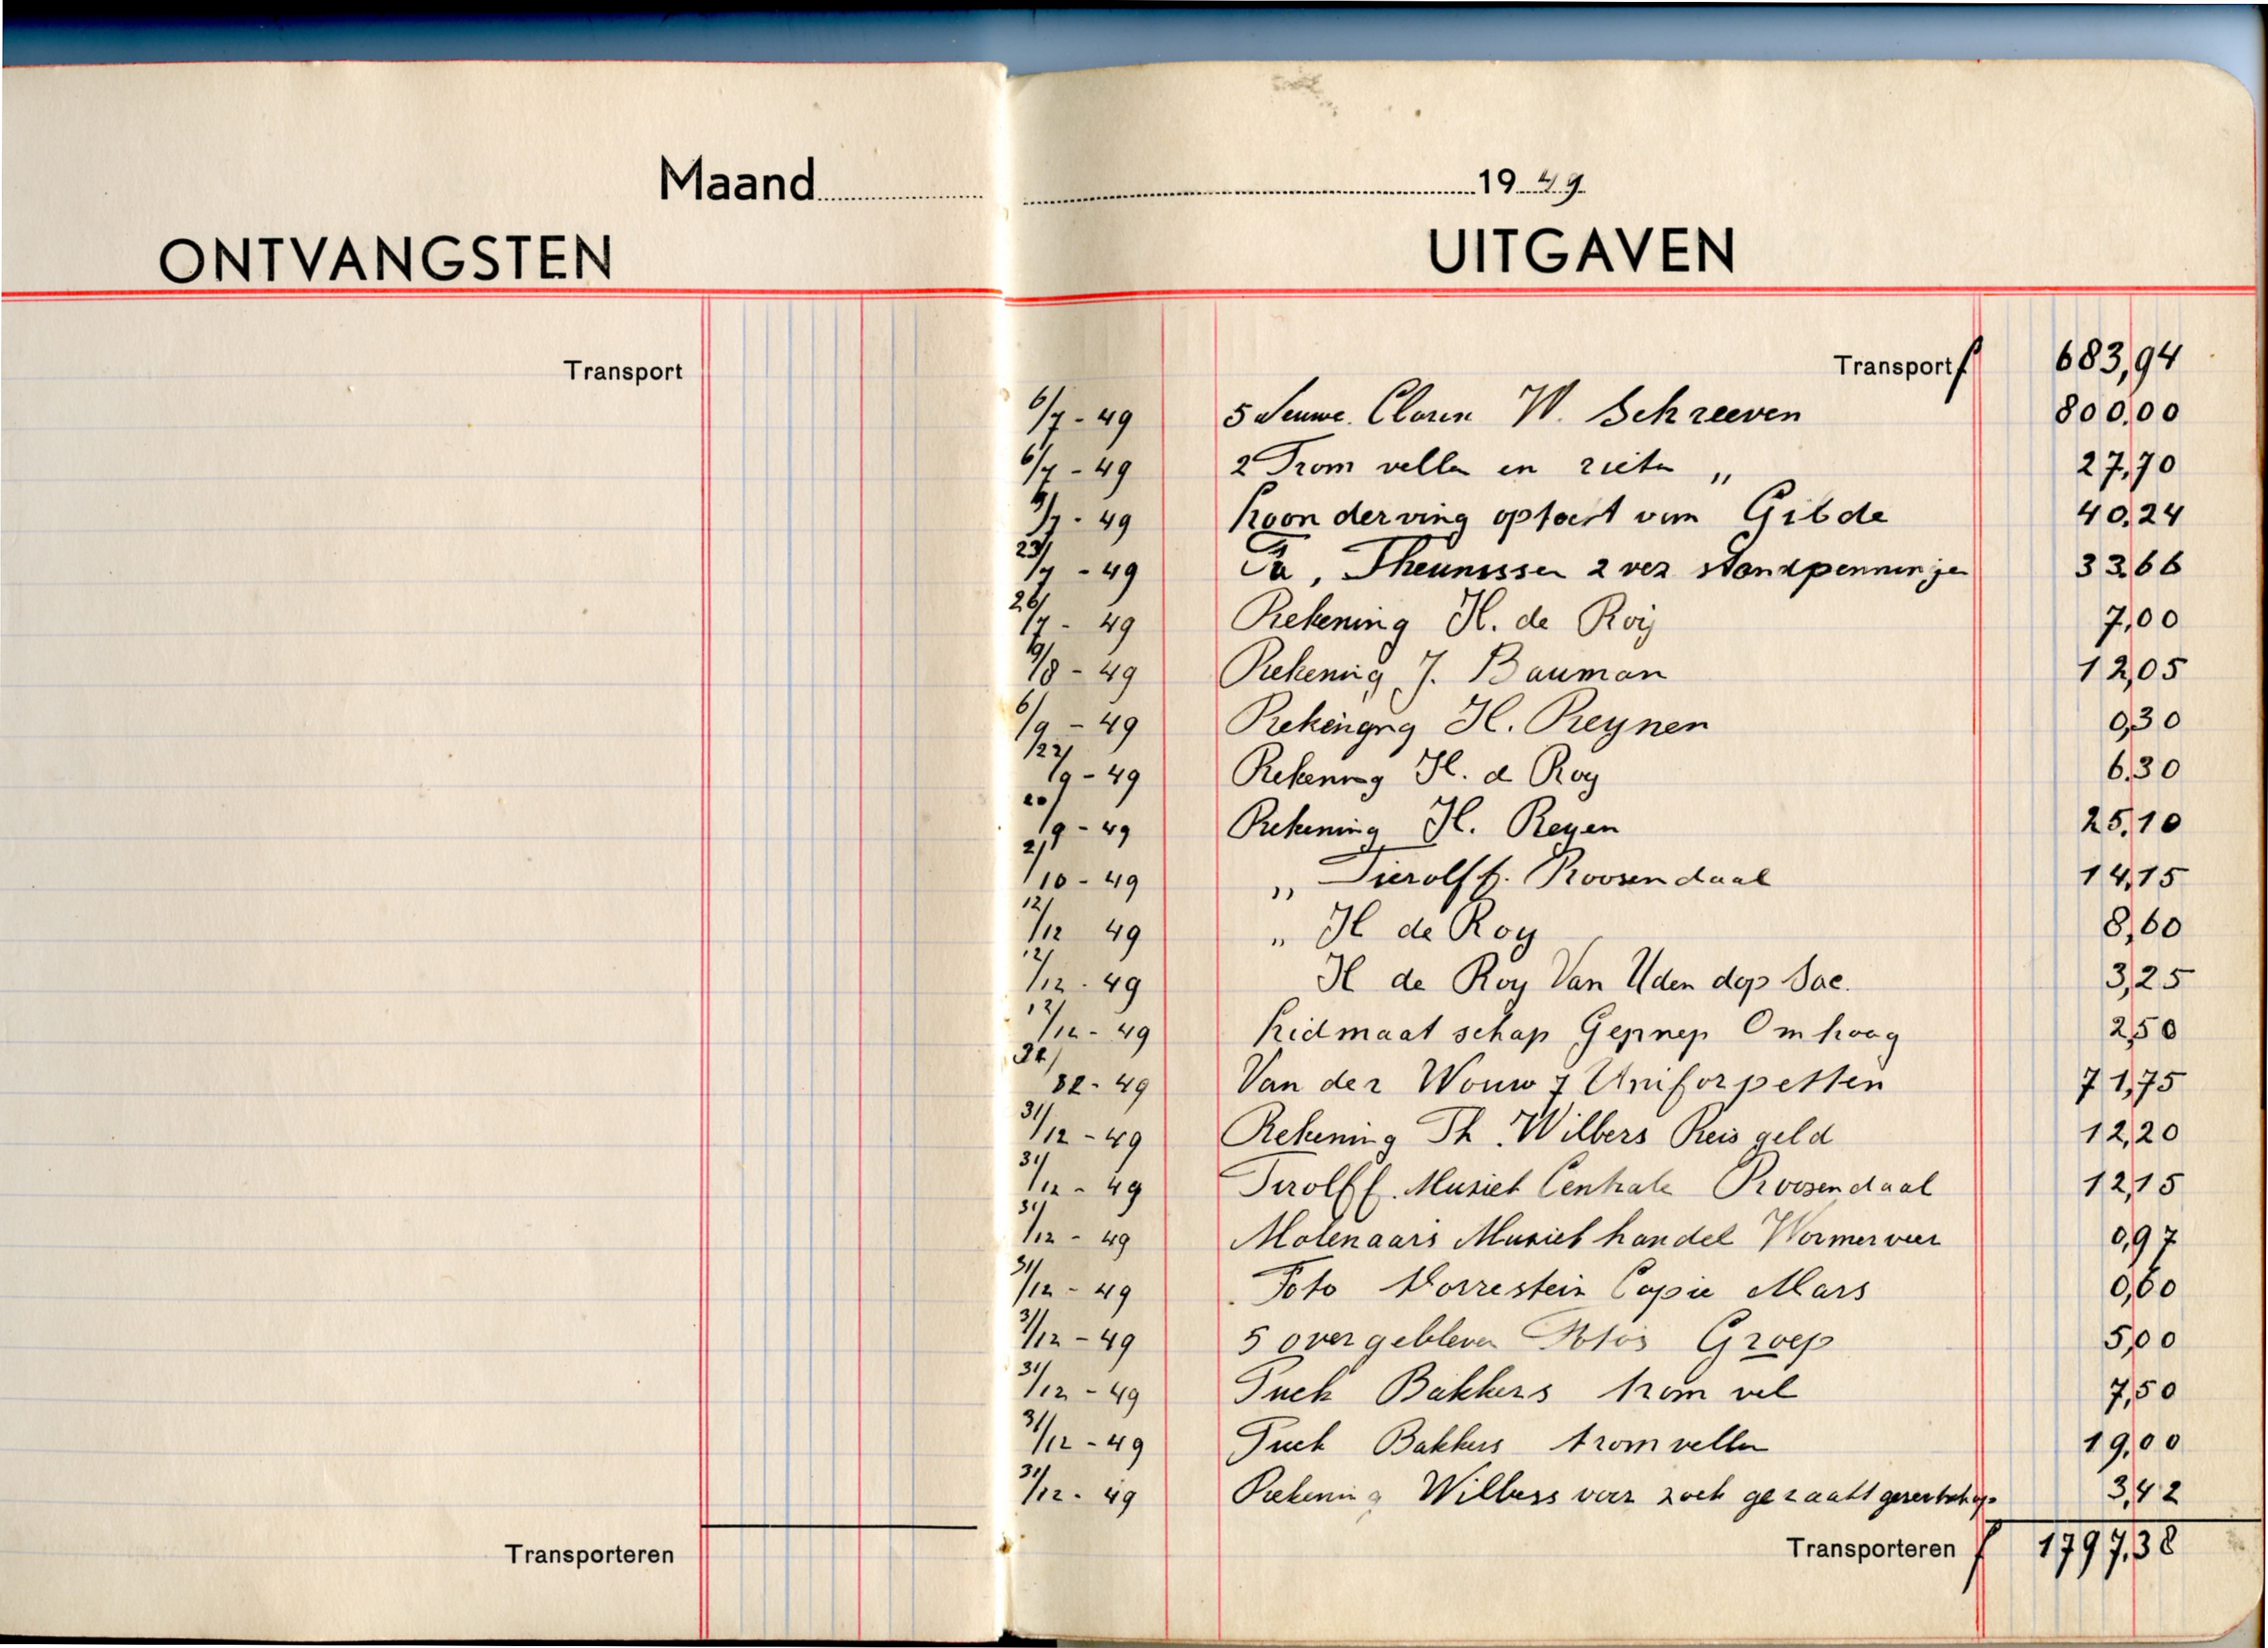 Maand 1949
ONTVANGSTEN
Transport
Transporteren
UITGAVEN
Transport f 683,94
6/7 - 49 5 Claren W. Schreeven 800.00
6/7 - 49 2 Trom vellen en rieten „ 27,70
/7 - 49 Loon derving optocht van Gilde 40,24
23/7 - 49 Fa, Theunissen 2 ver standpenningen 33.66
26/7 - 49 Rekening H. de Roij 7,00
19/8 - 49 Rekening J. Bauman 12,05
6/9 - 49 Rekengng H. Reynen 0,30
22/9 - 49 Rekening H. d Roy 6.30
20/9 - 49 Rekening H. Reyen 25,10
2/10 - 49 „ Tierolff. Roosendaal 14,15
12/12 49 „ H de Roy 8,60
12/12 - 49 H de Roy Van Uden dop Sac. 3,25
12/12 - 49 Lidmaat schap Gennep Omhoog 2,50
49 Van der Wouw 7 Uniforpetten 71,75
31/12 - 49 Rekening Th. Wilbers Reis geld 12,20
31/12 - 49 Tirolff. Musiek Centrale Roosendaal 12,15
31/12 - 49 Molenaars Musiek handel Wormerveer 0,97
31/12 - 49 Foto Vorrestein Copie Mars 0,60
31/12 - 49 5 over gebleven Fotos Groep 5,00
31/12 - 49 Puck Bakkers trom vel 7,50
31/12 - 49 Puck Bakkers tromvellen 19,00
31/12 - 49 Rekening Wilbers voor zoek geraakt 3,42
Transporteren f 1797,38